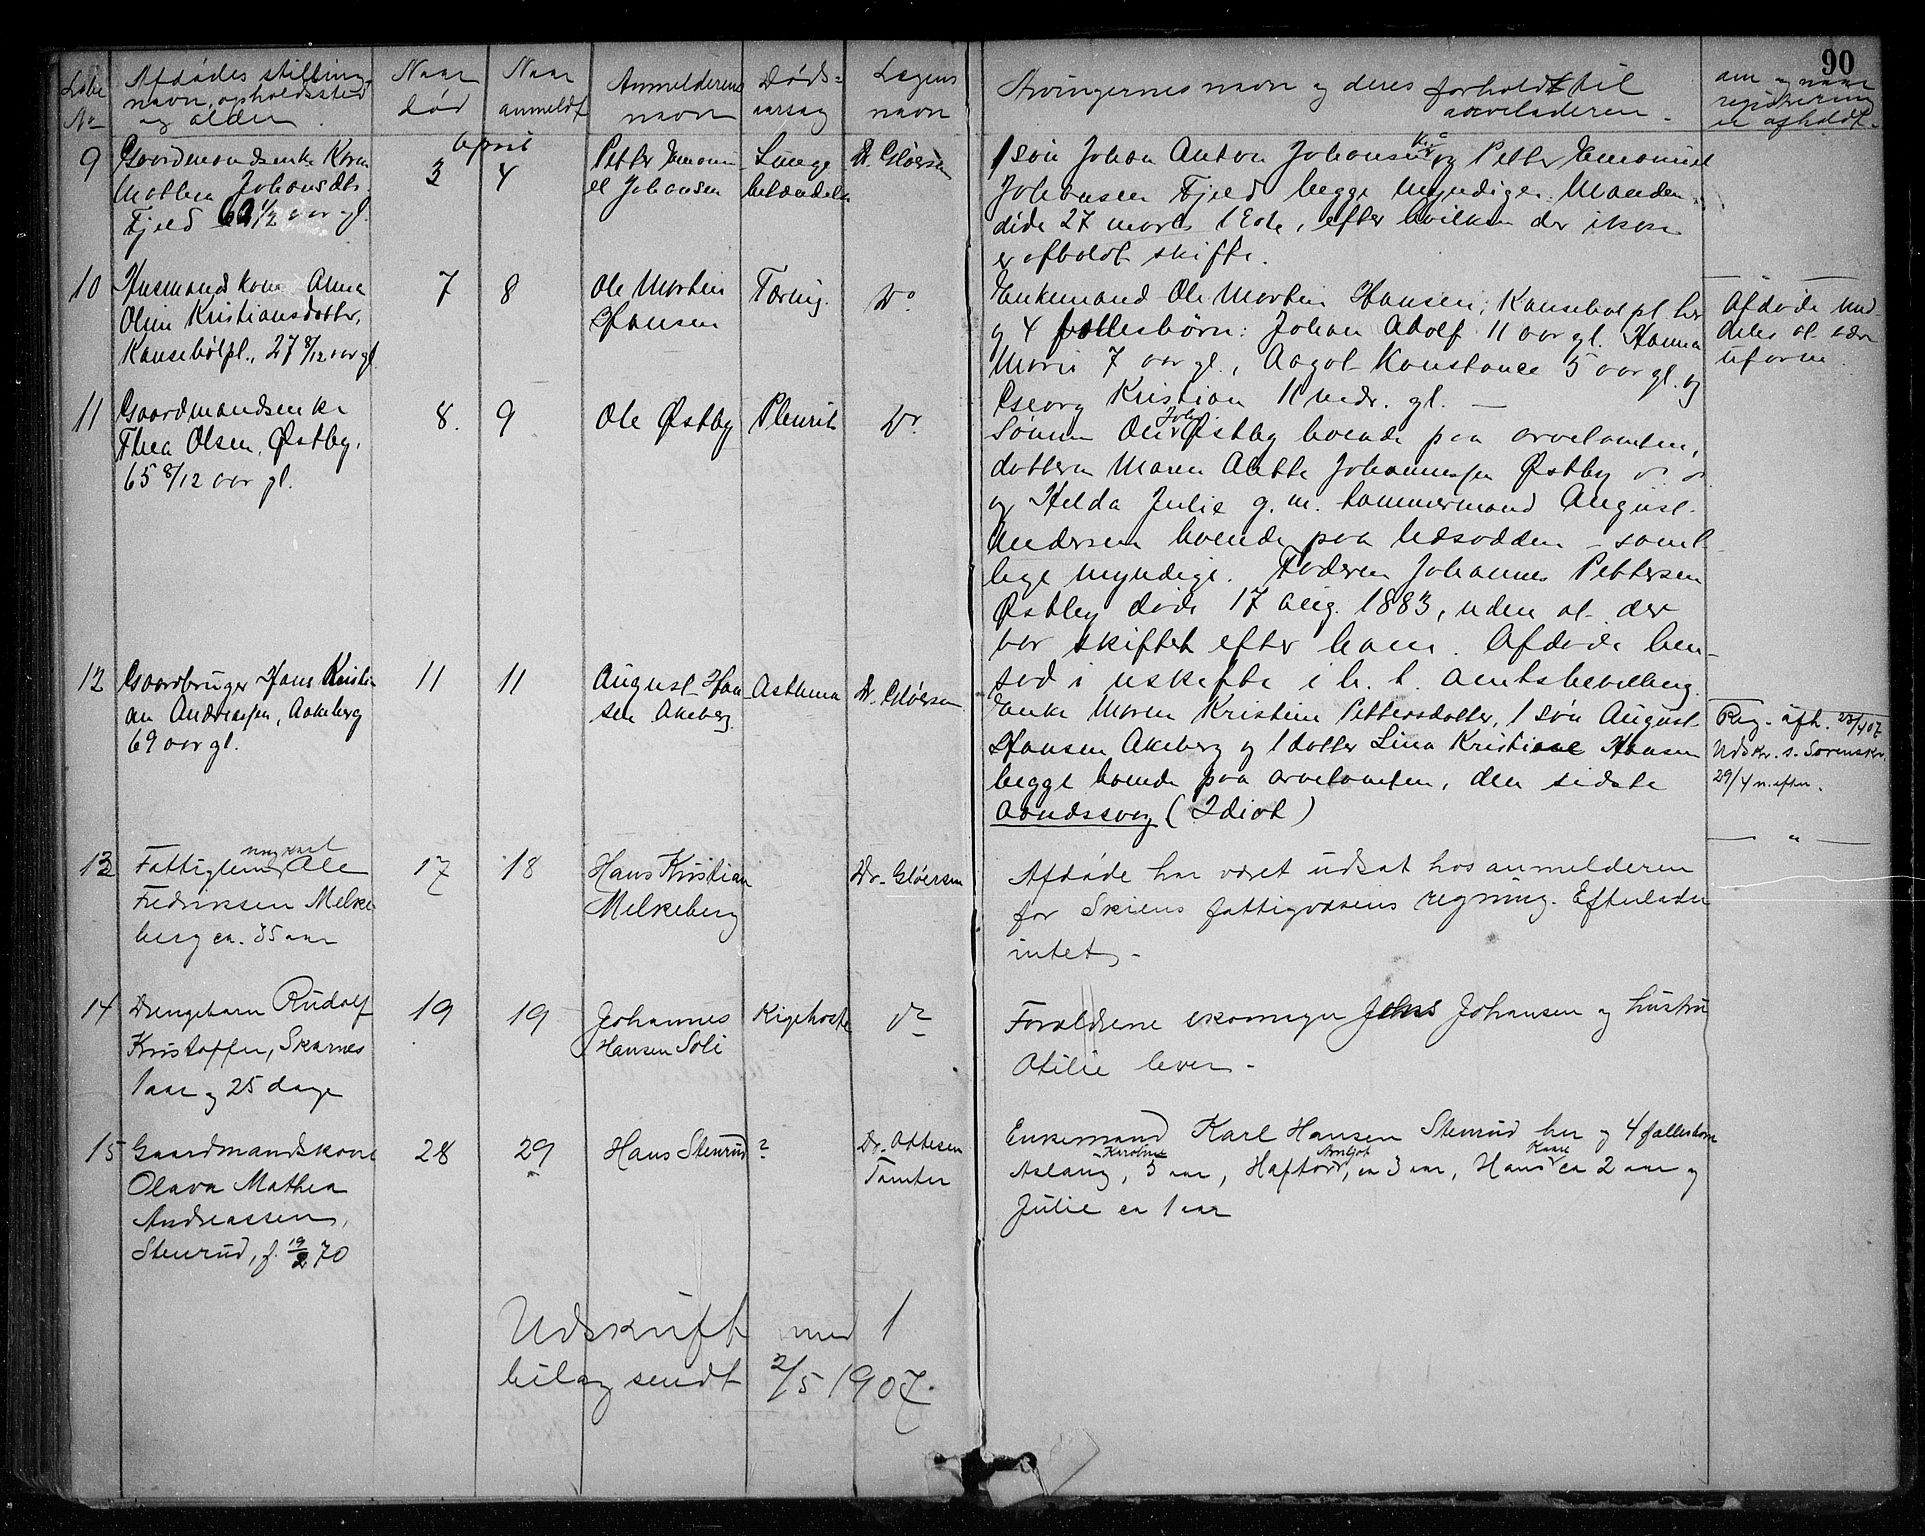 90
Løbe No
Afdødes stilling,
navn, opholdssted
og alder.
Naar
død
Naar
anmeldt
Anmelderens
navn
Døds-
aarsag
Lægens
navn
Arvingernes navn og deres forhold til
arveladeren.
om og naar
registrering
er afholdt.
April
9
Gaardmandsenke Karen
Mathea Johansdtr.
Fjeld 1/2 aar gl.
3
4
Petter Emanu
el Johansen
Lunge
betændelse
Dr. Gløersen
1 søn Johan Anton Johansen og Petter Emanuel
Johansen Fjeld begge myndige. Manden
døde 27 marts, efter hvilken der ikke
er afholdt skifte.
10
Husmandskone Anne
Oline Kristiansdatter,
Kausebølpl., 27 8/12 aar gl
7
8
Ole Martin
Hansen
Tæring.
Do
Enkemand Ole Martin Hansen, Kausebølpl. her
og 4 fællesbørn: Johan Adolf 11 aar gl. Hanna
Marie 7 aar gl., Aagot Konstance 5 aar gl. og
Georg Kristian 11 mdr. gl. —
Afdøde med-
deles at være
uformu
11
Gaardmandsenke
Thea Olsen, Østby,
65 8/12 aar gl.
8.
9
Ole Østby
Pleurit
Do.
Sønnen Ole Joh. Østby boende paa arvetomten,
datteren Maren Alette Johannesen Østby
og Hilda Julie g. m. tømmermand August
Andersen boende paa Udsodden – samt-
lige myndige. Faderen Johannes Pettersen
Østby døde 17 aug. 1883, uden at der
var skiftet efter ham. Afdøde hen-
sad i uskifte i h. t. amtsbevilling.
12
Gaardbruger Hans Kristi
an Andreassen, Aakeberg
69 aar gl.
11
11
August Han
sen Akeberg
Asthma
Dr. Gløersen
Enke Maren Kristine Pettersdatter, 1 søn August
Hansen Akeberg og 1 datter Lina Kristiane Hansen
begge boende paa arvetomten, den sidste
aandssvag (Idiot)
Reg. afh. 23/4 07.
Udskr. s. Sorenskr.
29/4 n. efter.
13
Fattiglem ungkarl Ole
Fredriksen Melke
berg ca. 35 aar
17
18
Hans Kristian
Melkeberg
Dr. Gløersen
Afdøde har været udsat hos anmelderen
for Skiens fattigvæsens regning. Efterlader
intet. –
— " —
14
Drengebarn Rudolf
Kristoffer, Skarnes
1 aar og 25 dage
19
19
Johannes
Hansen Soli
Kighoste
do
Forældrene skomager Johs Johansen og hustru
Otilie lever –
15
Gaardmandskone
Olava Mathea
Andreassen,
Stenrud, f. 19/2 70
28
29
Hans Stenrud
?
Dr. Ottesen
Tomter
Enkemand Karl Hansen Stenrud her og 4 fællesbørn
Aslaug Karoline, 5 aar, Haftor Arnljot, ca 3 aar, Hans Kaare ca 2 aar og
Julie ca 1 aar
Udskrift med 1
bilag sendt 2/5 1907.